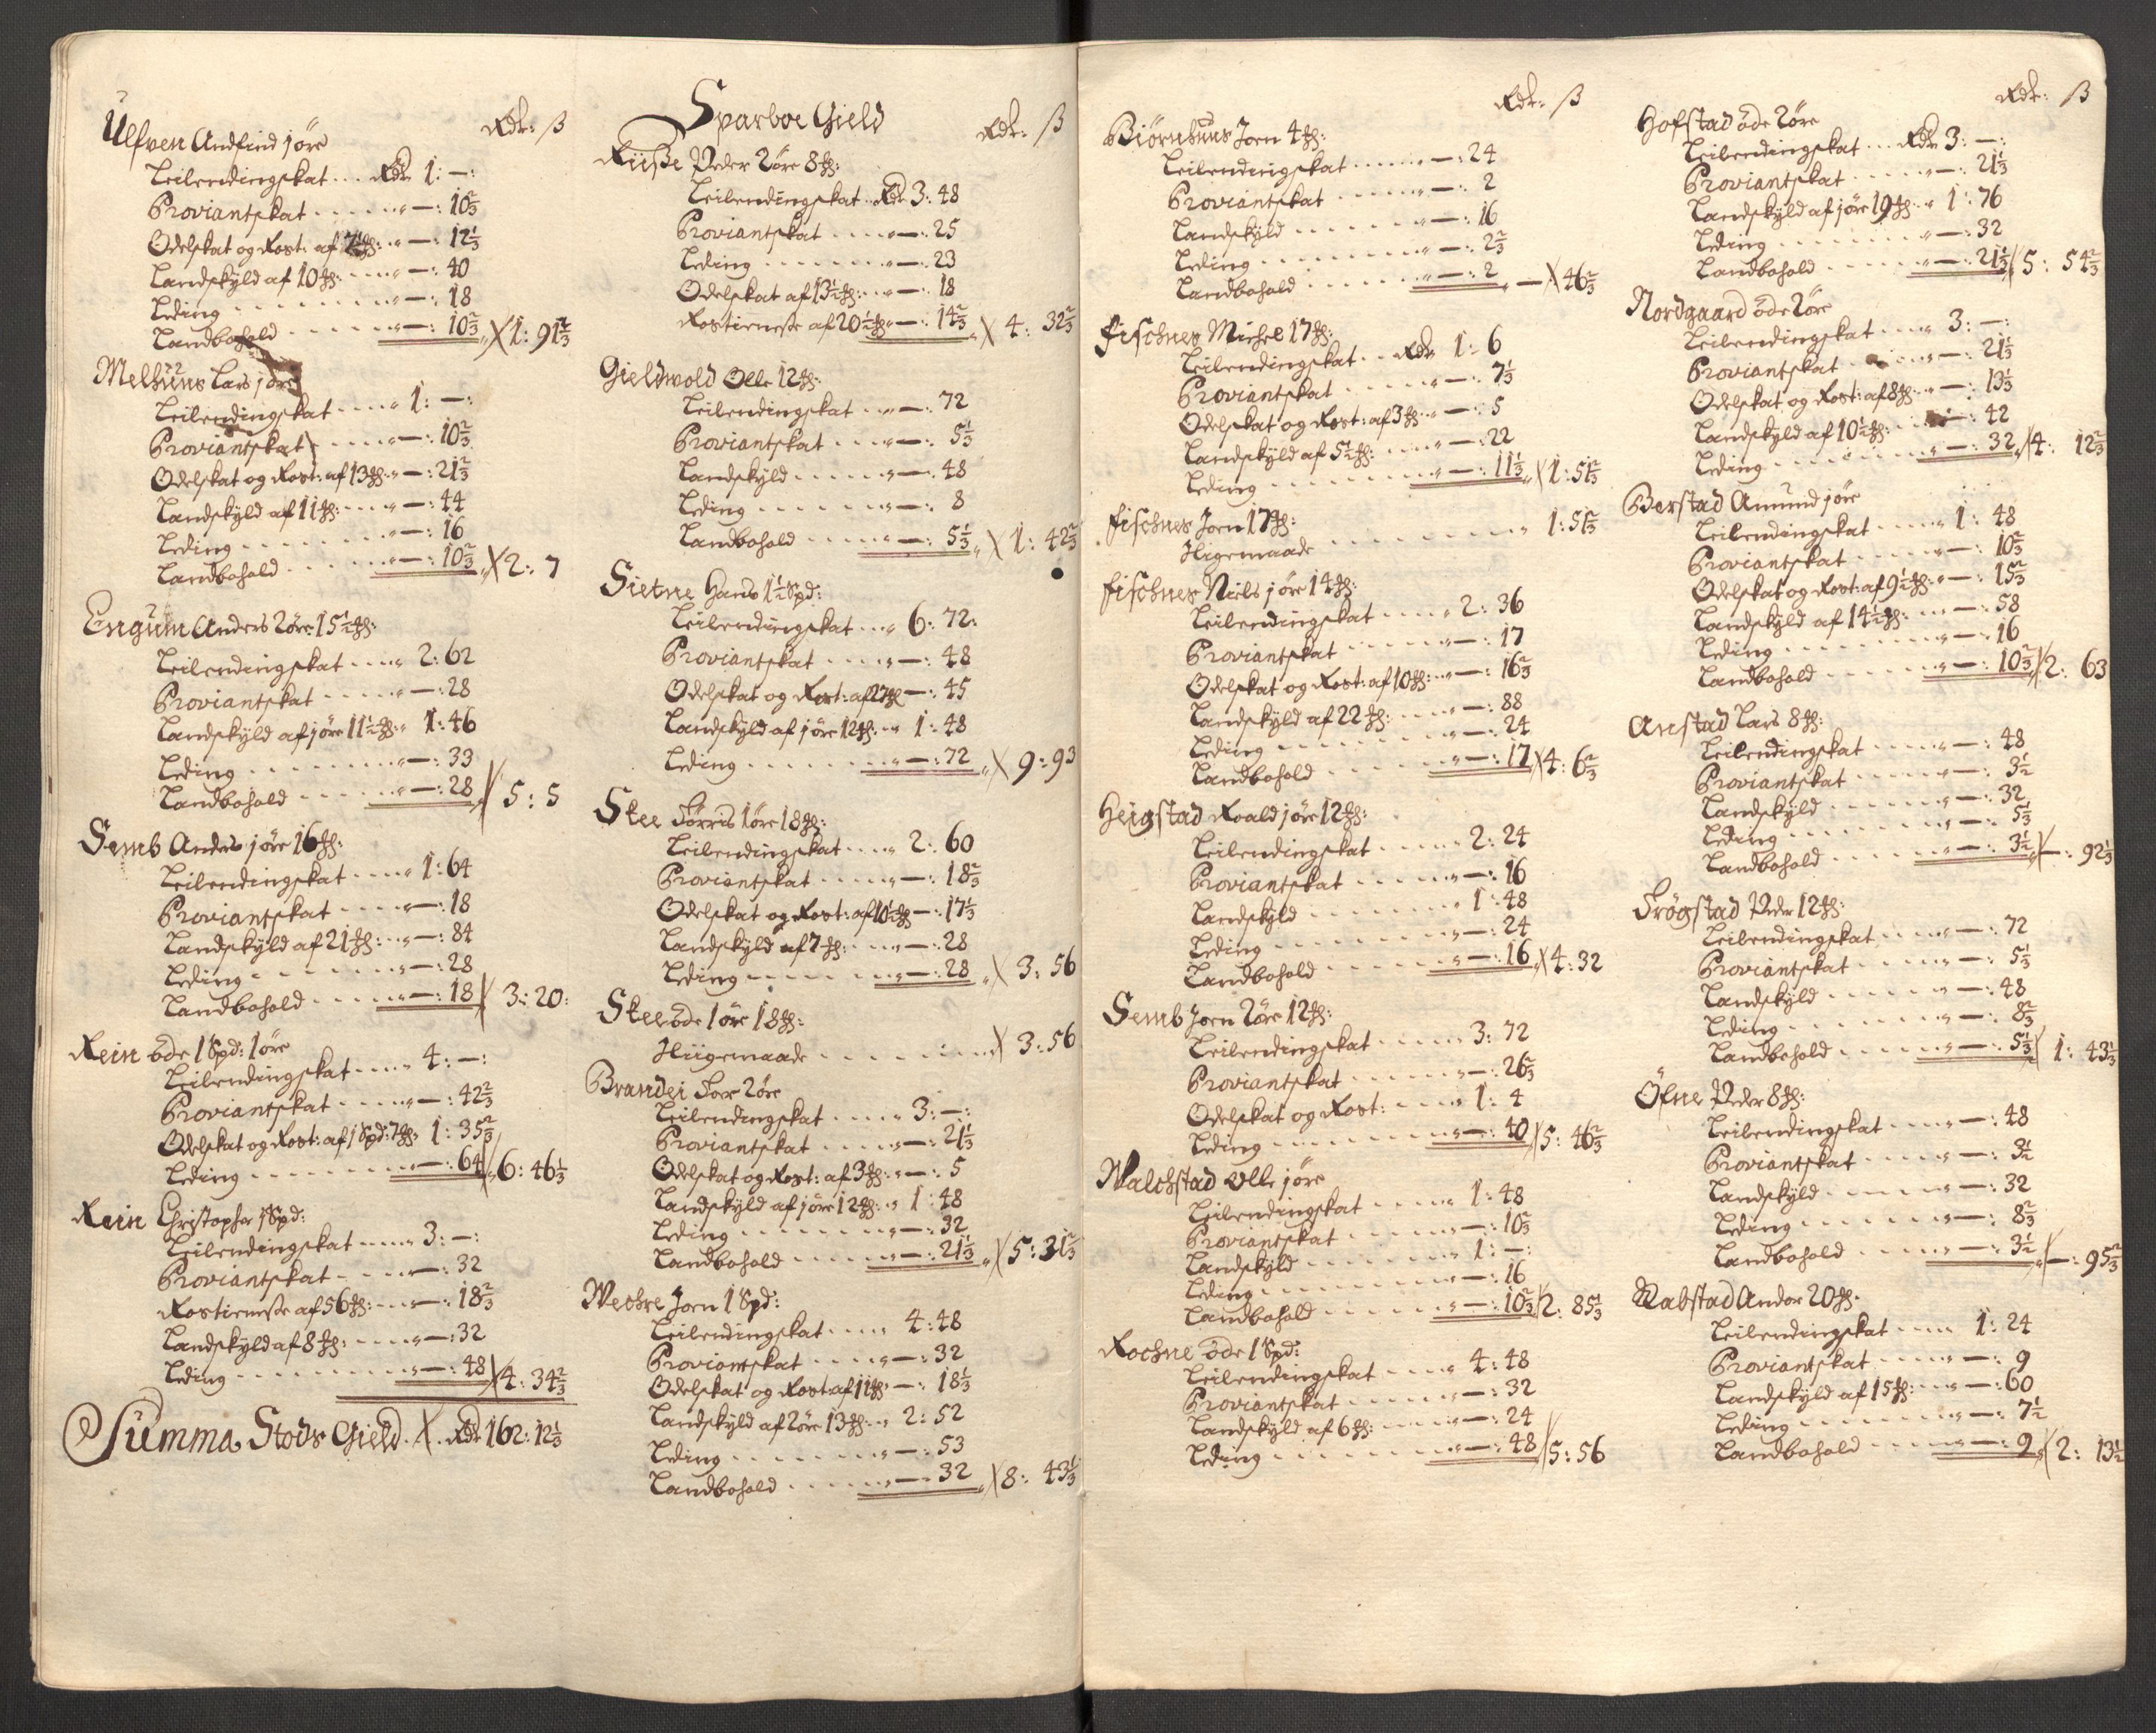 Rdr: ß
Ulfven Andfind 1øre
Leilendingskat ... Rdr 1: —:
Proviantskat ...... — : 10⅔
Odelskat og Rost: af 7½ : — : 12⅓
Landskyld af 10 : — : 40
Leding ...... — : 18
Landbohold ...... — : 10⅔ 1: 91⅔
Melhuus Lars 1øre
Leilendingskat .... 1: —:
Proviantskat .... — : 10⅔
Odelskat og Rost: af 13 : — : 21⅔
Landskyld af 11 : — : 44
Leding ...... — : 16
Landbohold ...... — : 10⅔ 2: 7
Engum Anders 2øre 15½ :
Leilendingskat .... 2: 62
Proviantskat ..... — : 28
Landskyld af 1øre 11½ : 1: 46
Leding ....... — : 33
Landbohold ...... — : 28 5: 5
Semb Anders 1øre 16 :
Leilendingskat .... 1: 64
Proviantskat .... — : 18
Landskyld af 21 : — : 84
Leding ...... — : 28
Landbohold ..... — : 18 3: 20:
Rein öde 1 Spd: 1øre
Leilendingskat .... 4: —:
Proviantskat .... — : 42⅔
Odelskat og Rost: af 1 Spd: 7 : 1: 35⅔
Leding ....... — : 64 6: 46⅓
Rein Christopher 1 Spd:
Leilendingskat .... 3: —:
Proviantskat .... — : 32
Rostieneste af 56 : — : 18⅔
Landskyld af 8 : — : 32
Leding ....... — : 48 4: 34⅔
Summa Stods Gield . Rdr 162: 12⅓
Sparboe Gield Rdr: ß
Riisse Peder 2øre 8 :
Leilendingskat .. Rdr 3: 48
Proviantskat .... — : 25
Leding ...... — : 23
Odelskat af 13½ : — : 18
Rostieneste af 20½ — : 14⅔ 4: 32⅔
Gieldwold Olle 12 :
Leilendingskat ... — : 72
Proviantskat .... — : 5⅓
Landskyld ..... — : 48
Leding ...... — : 8
Landbohold ..... — : 5⅓ 1: 42⅔
Sietne Hans 1½ Spd:
Leilendingskat ... 6: 72:
Proviantskat .... — : 48
Odelskat og Rost: af 27 — : 45
Landskyld af 1øre 12 : 1: 48
Leding ...... — : 72 9: 93
Stee Torris 1øre 18 :
Leilendingskat .... 2: 60
Proviantskat ..... — : 18⅔
Odelskat og Rost: af 10½ — : 17⅓
Landskyld af 7 : — : 28
Leding ...... — : 28 3: 56
Stee öde 1øre 18 :
Iligemaade ....... 3: 56
Brandei Tore 2øre
Leilendingskat .... 3: —:
Proviantskat .... — : 21⅓
Odelskat og Rost: af 3 : — : 5
Landskyld af 1øre 12 : 1: 48
Leding ...... — : 32
Landbohold ..... — : 21⅓ 5: 31⅔
Wechre Joen 1 Spd:
Leilendingskat .... 4: 48
Proviantskat .... — : 32
Odelskat og Rost: af 11 : — : 18⅓
Landskyld af 2øre 13 : 2: 52
Leding ...... — : 53
Landbohold ..... — : 32 8: 43⅓
Rdr: ß
Biørnhuus Joen 4 :
Leilendingskat ..... — : 24
Proviantskat ..... — : 2
Landskyld ...... — : 16
Leding ....... — : 2⅔
Landbohold ...... — : 2 — 46⅔
Fischnes Michel 17 :
Leilendingskat .. Rdr 1: 6
Proviantskat ..... — : 7⅓
Odelskat og Rost: af 3 : — : 5
Landskyld af 5½ : — : 22
Leding ....... — : 11⅓ 1: 51⅔
Fischnes Joen 17 :
Iligemaade ........ 1: 51⅔
Fischnes Niels 1øre 14 :
Leilendingskat .... 2: 36
Proviantskat ..... — : 17
Odelskat og Rost: af 10 : — : 16⅔
Landskyld af 22 : — : 88
Leding ....... — : 24
Landbohold ...... — : 17 4: 6⅔
Heigstad Roald 1øre 12 :
Leilendingskat .... 2: 24
Proviantskat .... — : 16
Landskyld ...... 1: 48
Leding ...... — : 24
Landbohold ..... — : 16 4: 32
Semb Joen 2øre 12 :
Leilendingskat .... 3: 72
Proviantskat .... — : 26⅔
Odelskat og Rost: .... 1: 4
Leding ....... — : 40 5: 46⅔
Walchstad Olle 1øre
Leilendingskat .... 1: 48
Proviantskat .... — : 10⅔
Landskyld ...... 1: —:
Leding ...... — : 16
Landbohold ..... — : 10⅔ 2: 85⅓
Rochne öde 1 Spd:
Leilendingskat .... 4: 48
Proviantskat .... — : 32
Landskyld af 6 : — : 24
Leding ...... — : 48 5: 56
Rdr: ß
Hofstad öde 2øre
Leilendingskat ... Rdr 3: —:
Proviantskat .... — : 21⅓
Landskyld af 1øre 19 : 1: 76
Leding ...... — : 32
Landbohold ..... — : 21⅓ 5: 54⅔
Nordgaard öde 2øre
Leilendingskat .... 3: —:
Proviantskat .... — : 21⅓
Odelskat og Rost: af 8 : — : 13⅓
Landskyld af 10½ : — : 42
Leding ...... — : 32 4: 12⅔
Berstad Amund 1øre
Leilendingskat .... 1: 48
Proviantskat .... — : 10⅔
Odelskat og Rost: af 9½ : — : 15⅔
Landskyld af 14½ : — : 58
Leding ...... — : 16
Landbohold ..... — : 10⅔ 2: 63
Anstad Lars 8 :
Leilendingskat .... — : 48
Proviantskat .... — : 3½
Landskyld ..... — : 32
Leding ...... — : 5⅓
Landbohold ..... — : 3½ — : 92⅓
Trøgstad Peder 12 :
Leilendingskat .... — : 72
Proviantskat .... — : 5⅓
Landskyld ..... — : 48
Leding ...... — : 8⅔
Landbohold ..... — : 5⅓ 1: 43⅓
Öfne Peder 8 :
Leilendingskat .... — : 48
Proviantskat .... — : 3½
Landskyld ..... — : 32
Leding ...... — : 8⅔
Landbohold ..... — : 3½ — : 95⅔
Rabstad Andor 20 :
Leilendingskat .... 1: 24
Proviantskat .... — : 9
Landskyld af 15 : — : 60
Leding ...... — : 7½
Landbohold ..... — : 9 2: 13½